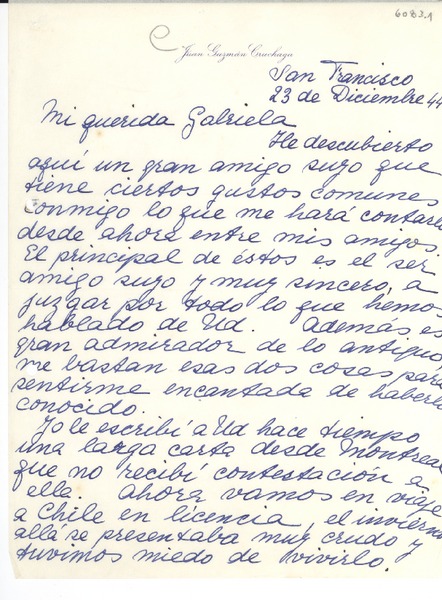 6083.1
Juan Guzmán Cruchaga
San Francisco
23 de Diciembre 44
Mi querida Gabriela
He descubierto
aquí un gran amigo suyo que
tiene ciertos gustos comunes
conmigo lo que me hará contarlo
desde ahora entre mis amigos.
El principal de éstos es el ser
amigo suyo y muy sincero, a
juzgar por todo lo que hemos
hablado de Ud. Además es
gran admirador de lo antiguo
me bastan esas dos cosas para
sentirme encantada de haberlo
conocido.
Yo le escribí a Ud hace tiempo
una larga carta desde Montreal
que no recibí contestación a
ella. Ahora vamos en viaje
a Chile en licencia, el invierno
allá se presentaba muy crudo y
tuvimos miedo de vivirlo.